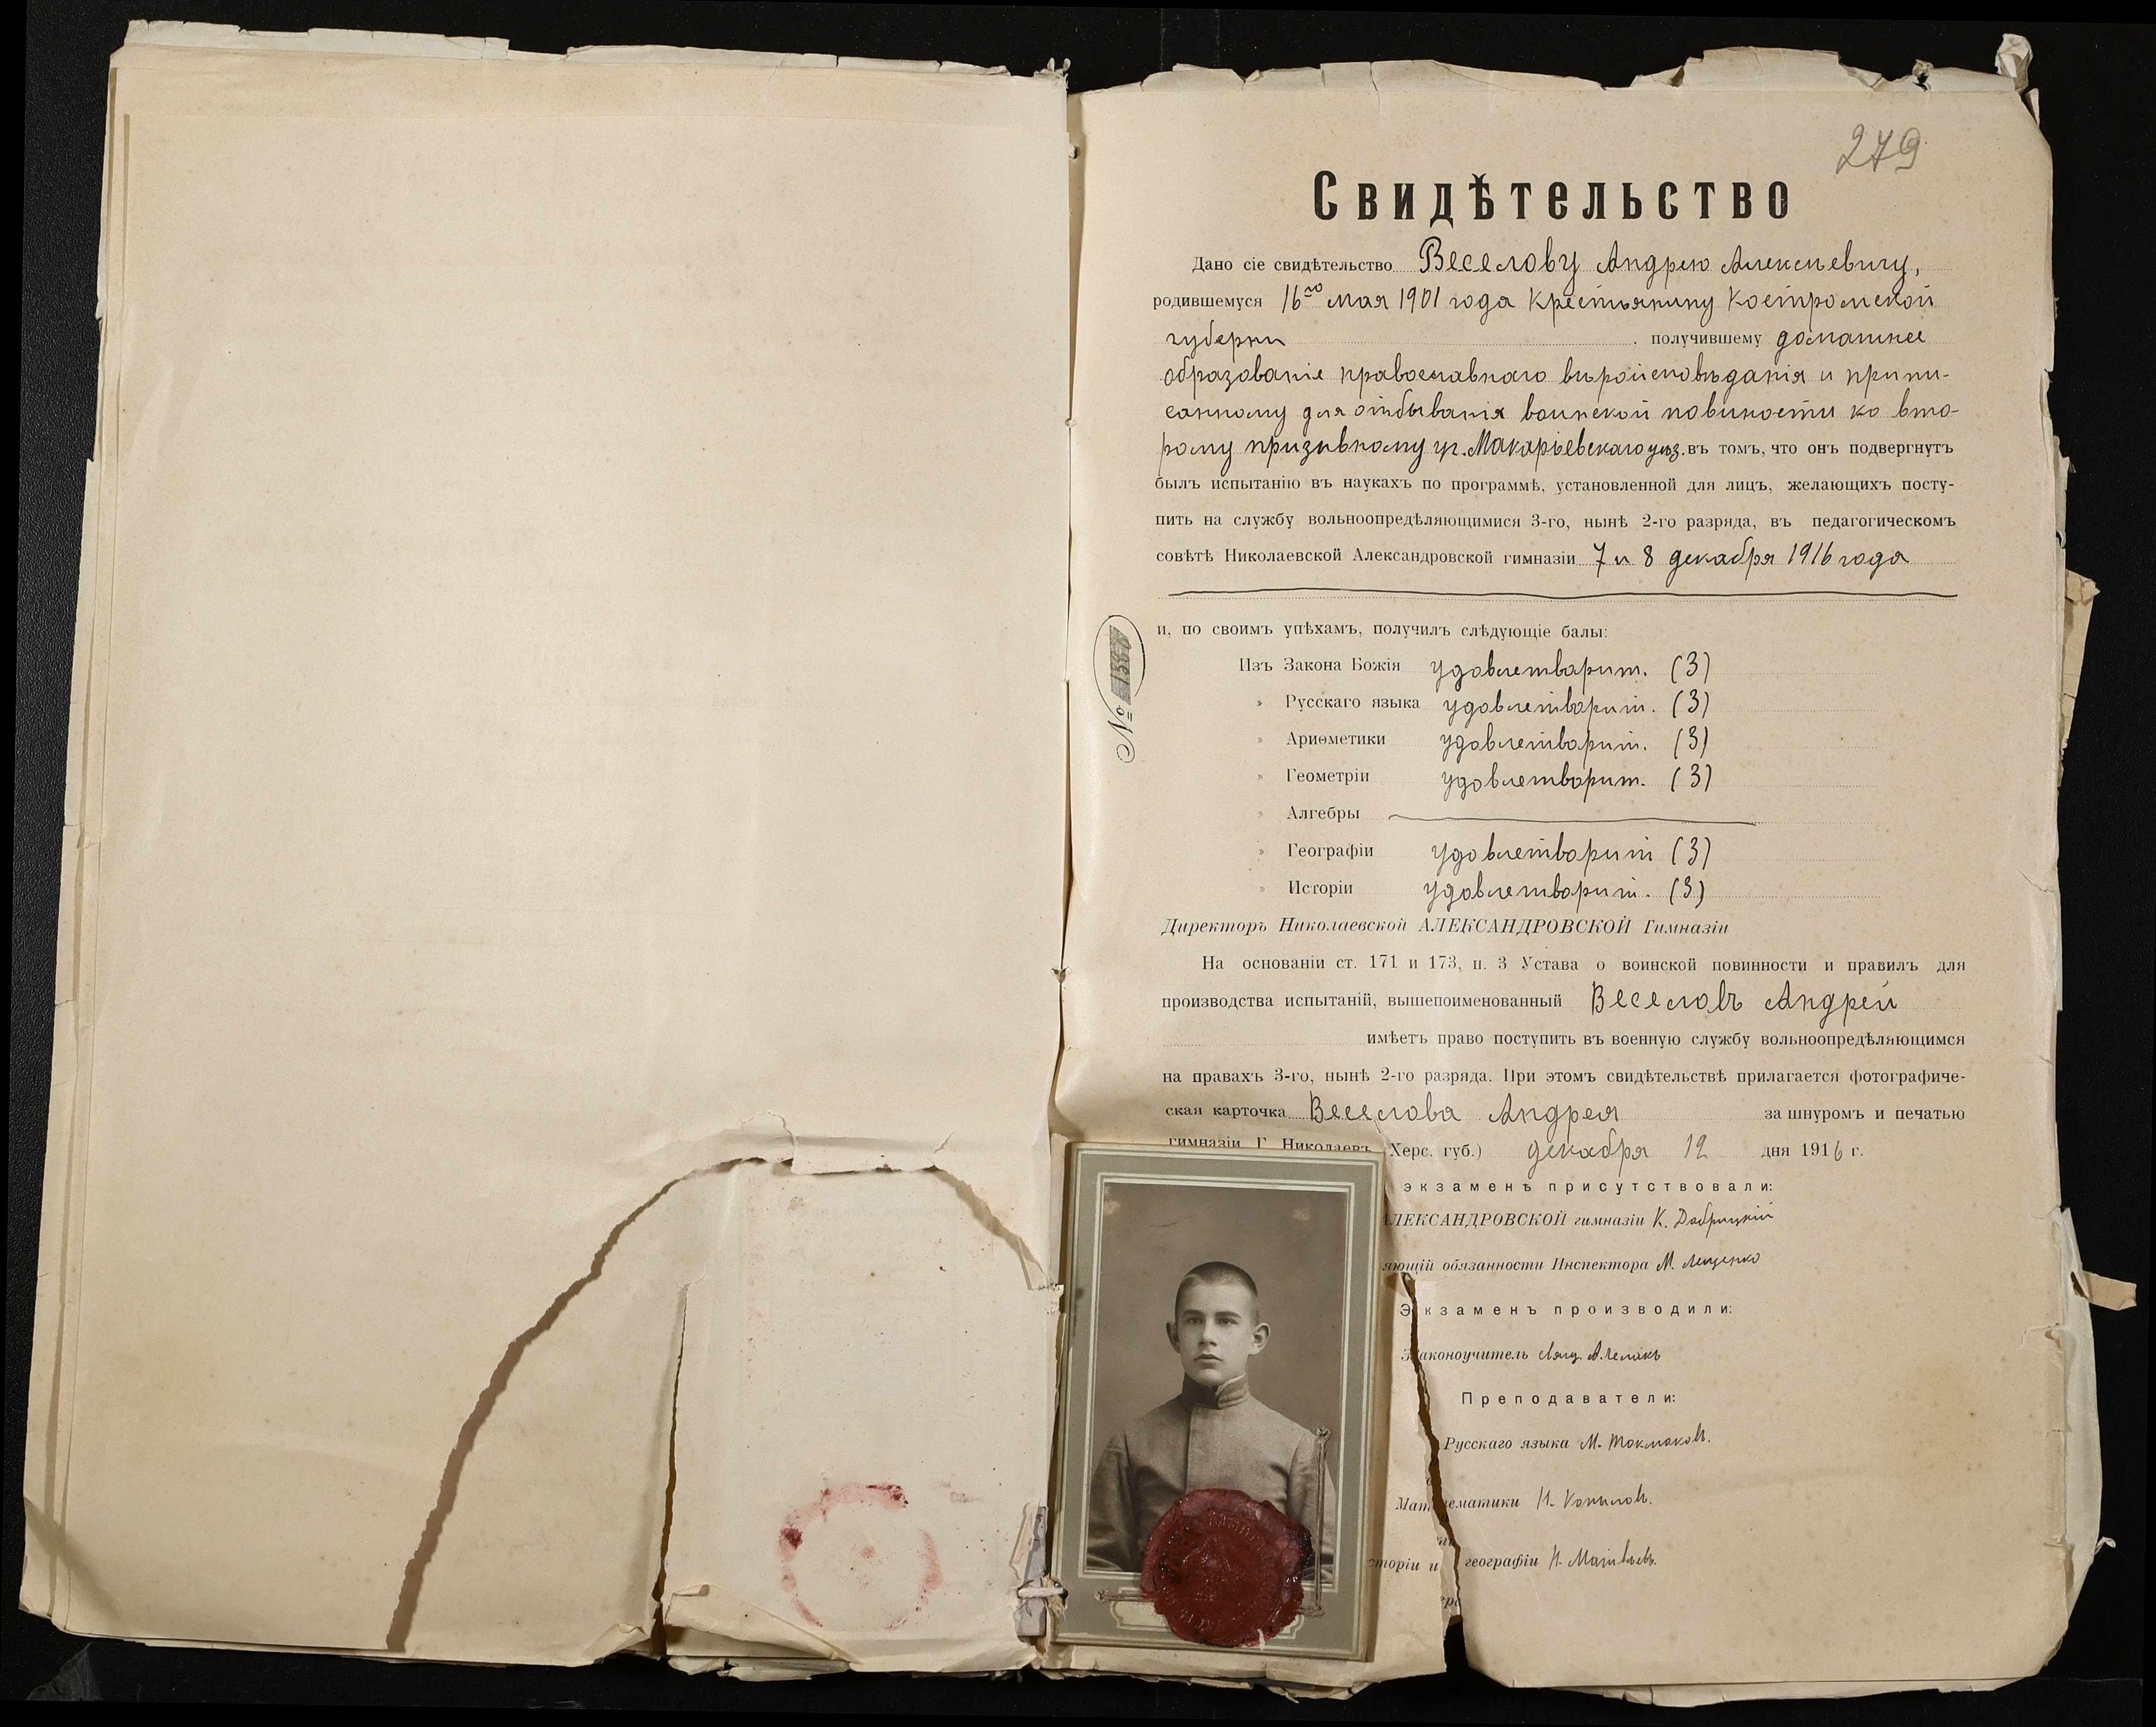 279
Свидѣтельство
Дано сіе свидѣтельство Веселову Андрею Алексѣевичу,
родившемуся 16го мая 1901 года крестьянину Костромской
губерни получившему домашнее
образованіе православнаго вѣроисповѣданія и припи-
санному для отбыванія воинской повиности ко вто-
рому призывному уч. Макарьевскаго уѣз. въ томъ, что онъ подвергнутъ
былъ испытанію въ наукахъ по программѣ, установленной для лицъ, желающихъ посту-
пить на службу вольноопредѣляющимися 3-го, нынѣ 2-го разряда, въ педагогическомъ
совѣтѣ Николаевской Александровской гимназіи 7 и 8 декабря 1916 года
и, по своимъ упѣхамъ, получилъ слѣдующіе балы:
№ 1386
Изъ Закона Божія удовлетварит. (3)
» Русскаго языка удовлетварит. (3)
» Ариѳметики удовлетварит. (3)
» Геометріи удовлетварит. (3)
» Алгебры
» Географіи удовлетварит (3)
» Исторіи удовлетварит. (3)
Директоръ Николаевской АЛЕКСАНДРОВСКОЙ Гимназіи
На основаніи ст. 171 и 173, п. 3 Устава о воинской повинности и правилъ для
производства испытаній, вышепоименованный Веселовъ Андрей
имѣетъ право поступить въ военную службу вольноопредѣляющимся
на правахъ 3-го, нынѣ 2-го разряда. При этомъ свидѣтельствѣ прилагается фотографиче-
ская карточка Веселова Андрея за шнуромъ и печатью
гимназіи Г. Николаевъ (Херс. губ.) декабря 12 дня 1916 г.
экзаменѣ присутствовали:
АЛЕКСАНДРОВСКОЙ гимназіи К. Добрицкій
яющій обязанности Инспектора М. Лещенко
Экзаменъ производили:
Законоучитель свящ.
Преподаватели:
Русскаго языка М. Токмаковъ.
Математики Н. Копыловъ.
сторіи и географіи Н. Матвѣевъ.